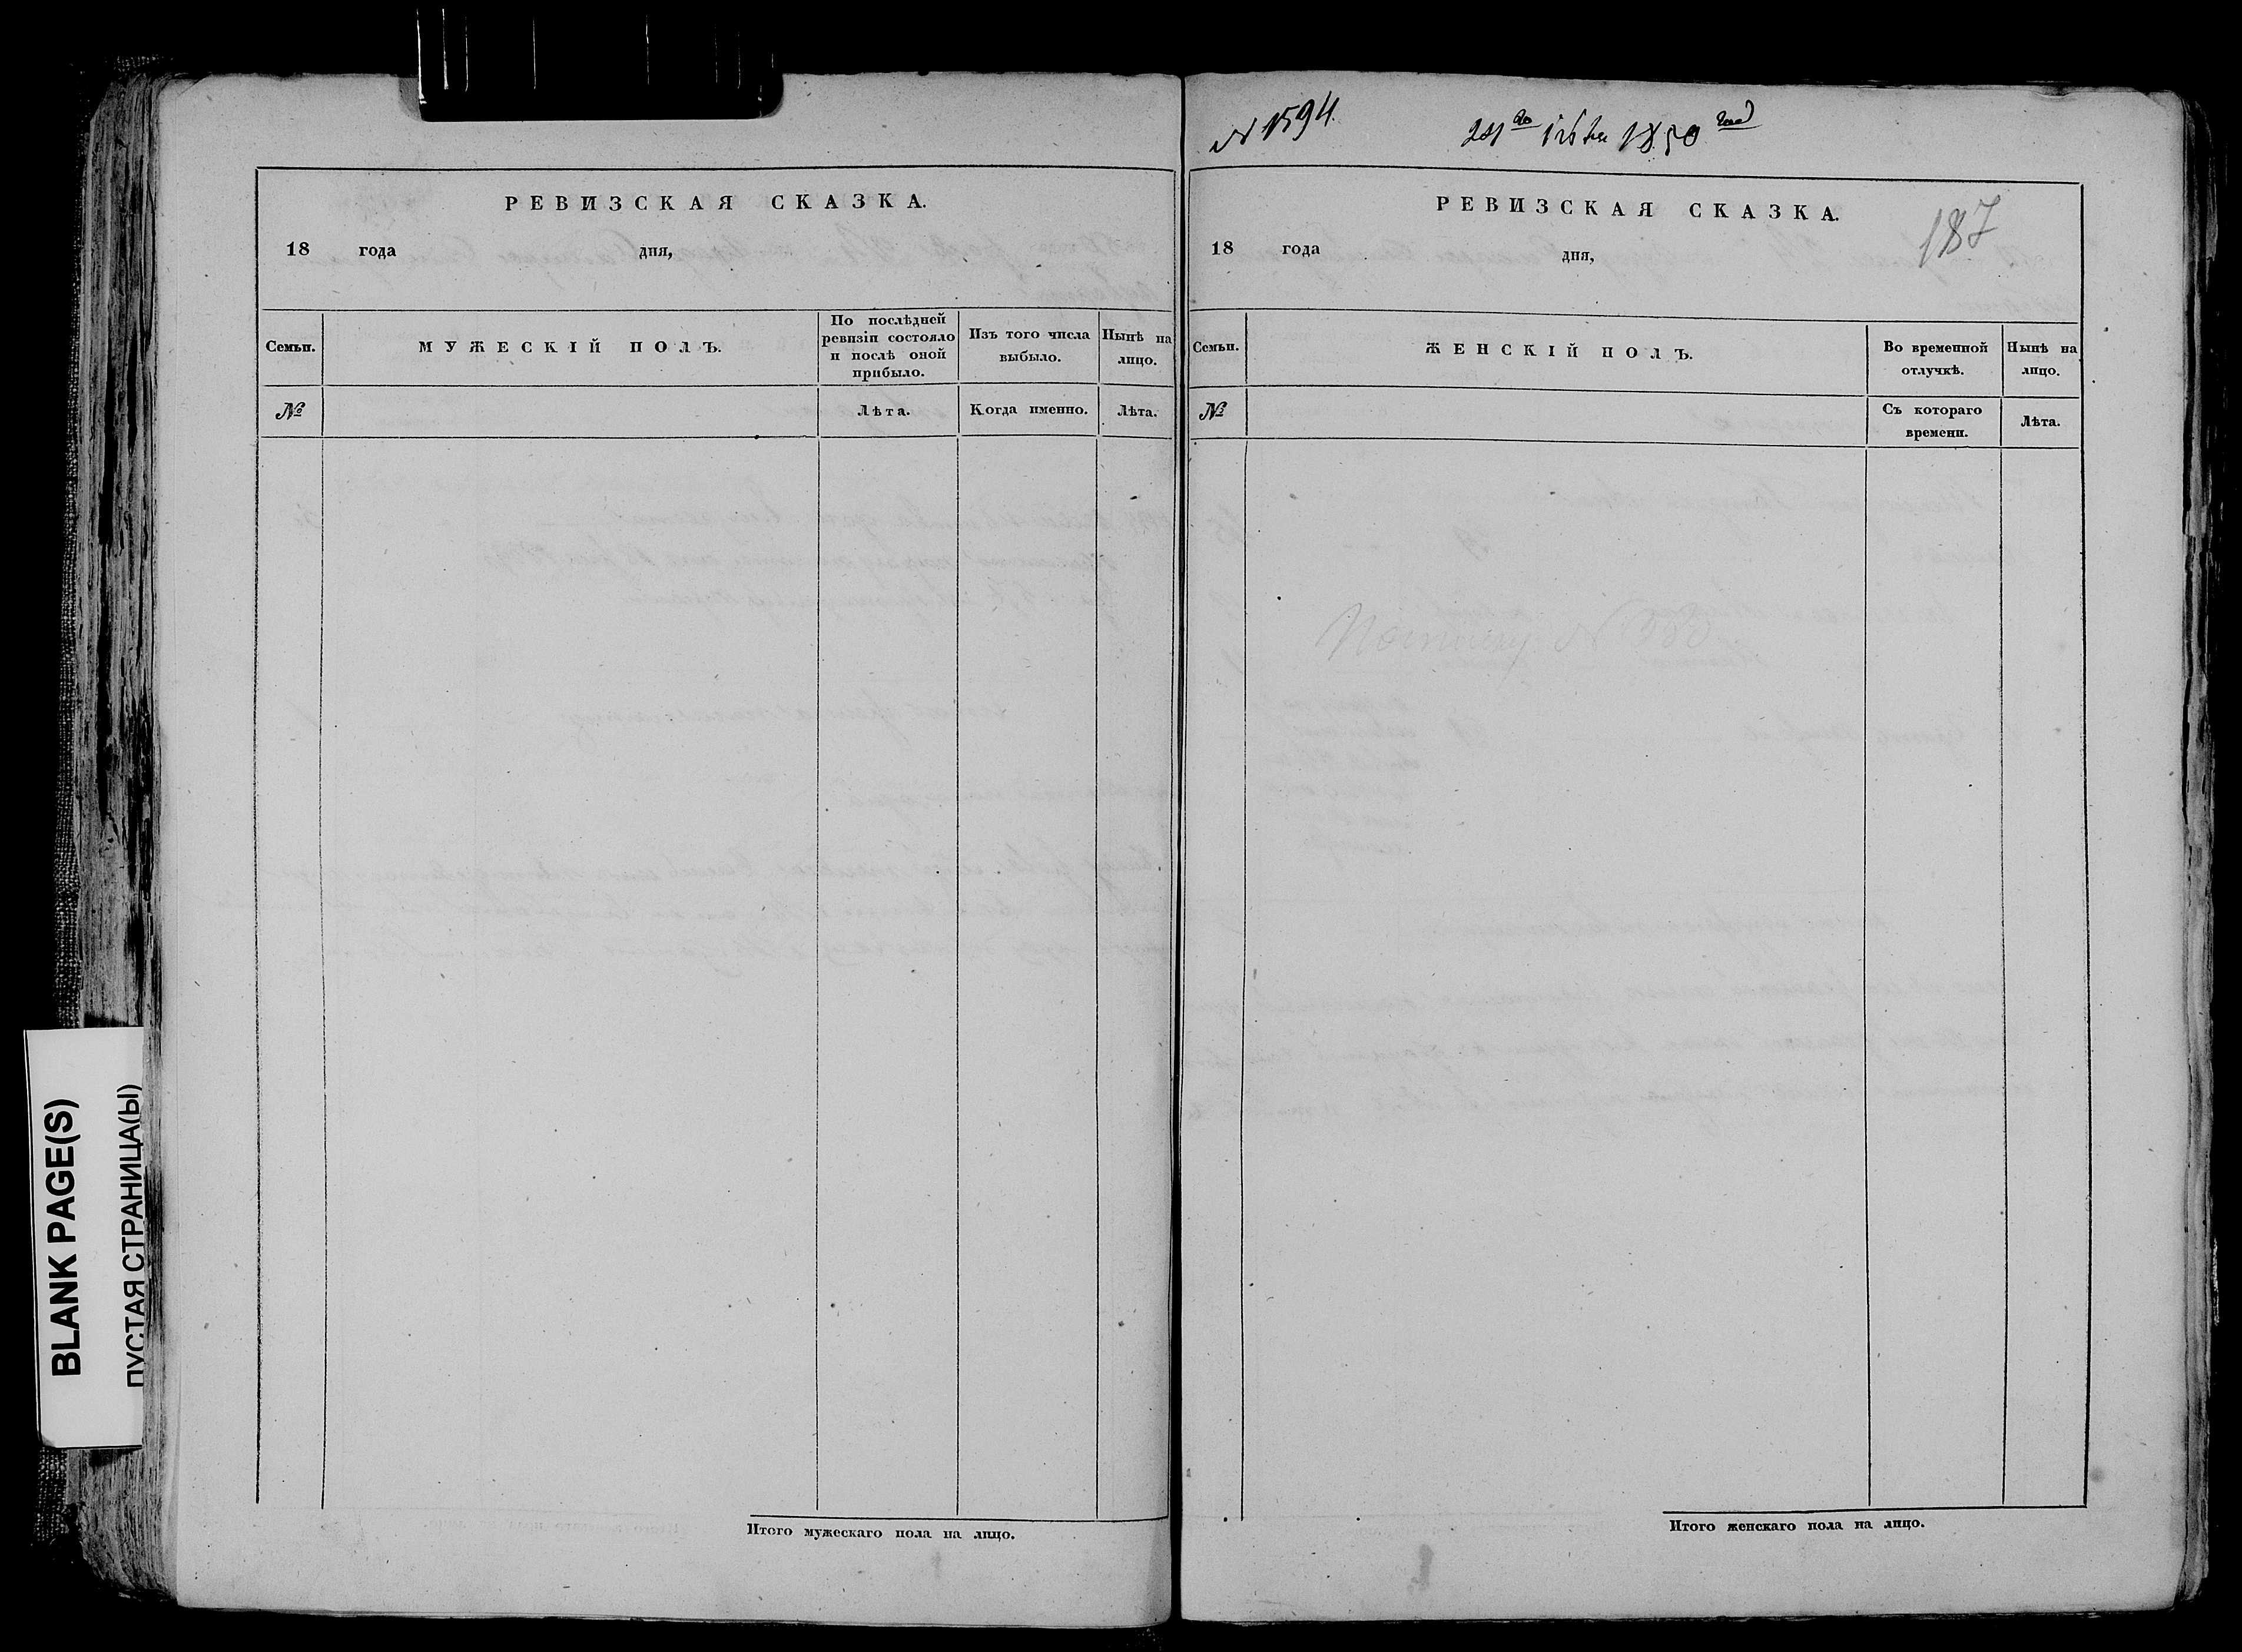 РЕВИЗСКАЯ СКАЗКА.
18 года дня,
Семьи. МУЖЕСКІЙ ПОЛЪ. По послѣдней ревизіи состояло и послѣ оной прибыло. Изъ того числа выбыло. Нынѣ на лицо.
№ Лѣта. Когда именно. Лѣта.
Итого мужескаго пола на лицо.
№ 1594.
1850
РЕВИЗСКАЯ СКАЗКА.
187
18 года дня,
Семьи. ЖЕНСКІЙ ПОЛЪ. Во временной отлучкѣ. Нынѣ на лицо.
№ Съ котораго времени. Лѣта.
Итого женскаго пола на лицо.
BLANK PAGE(S)
ПУСТАЯ СТРАНИЦА(Ы)